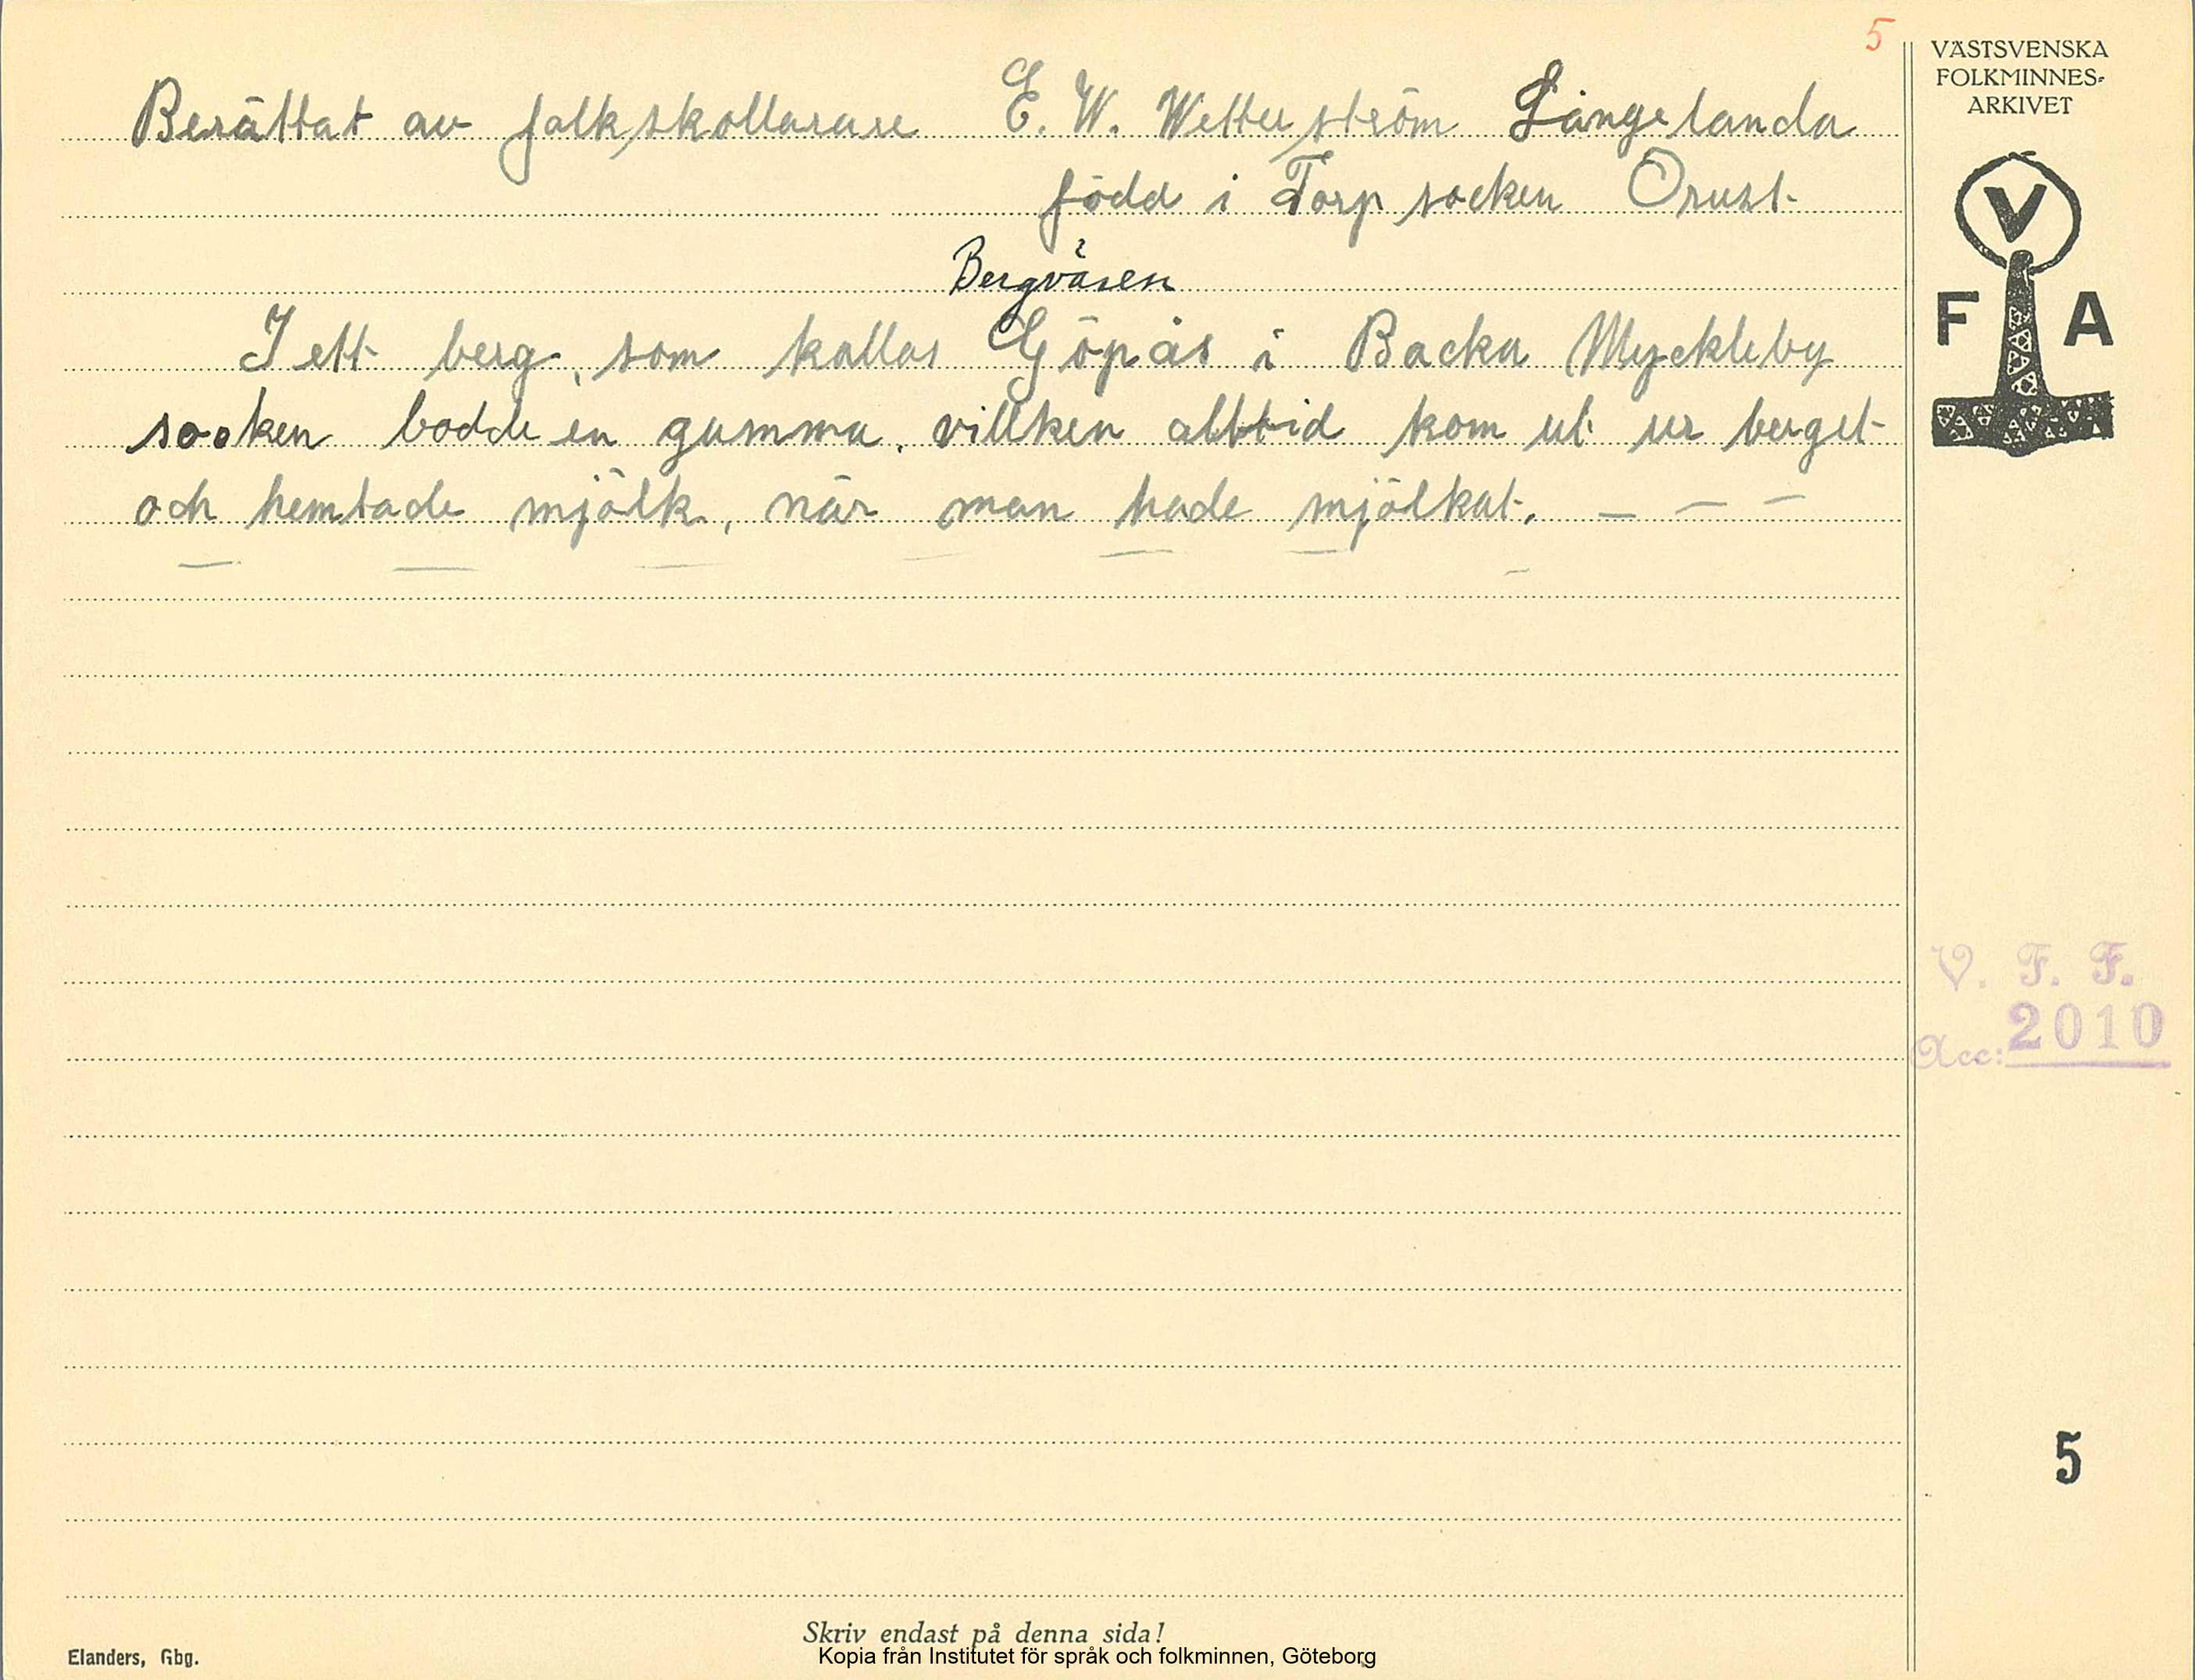 5
VÄSTSVENSKA
FOLKMINNES-
ARKIVET
Berättat av folkskollärare E. W. Wetterström Långelanda
född i Torp socken Orust
Bergväsen
V
F A
I ett berg, som kallas Göpås i Backa Myckleby
socken bodde en gumma, villken alltid kom ut ur berget
och hemtade mjölk, när man hade mjölkat. — — —
— — — — — — —
V. F. F.
Acc: 2010
5
Skriv endast på denna sida!
Elanders, Gbg.
Kopia från Institutet för språk och folkminnen, Göteborg